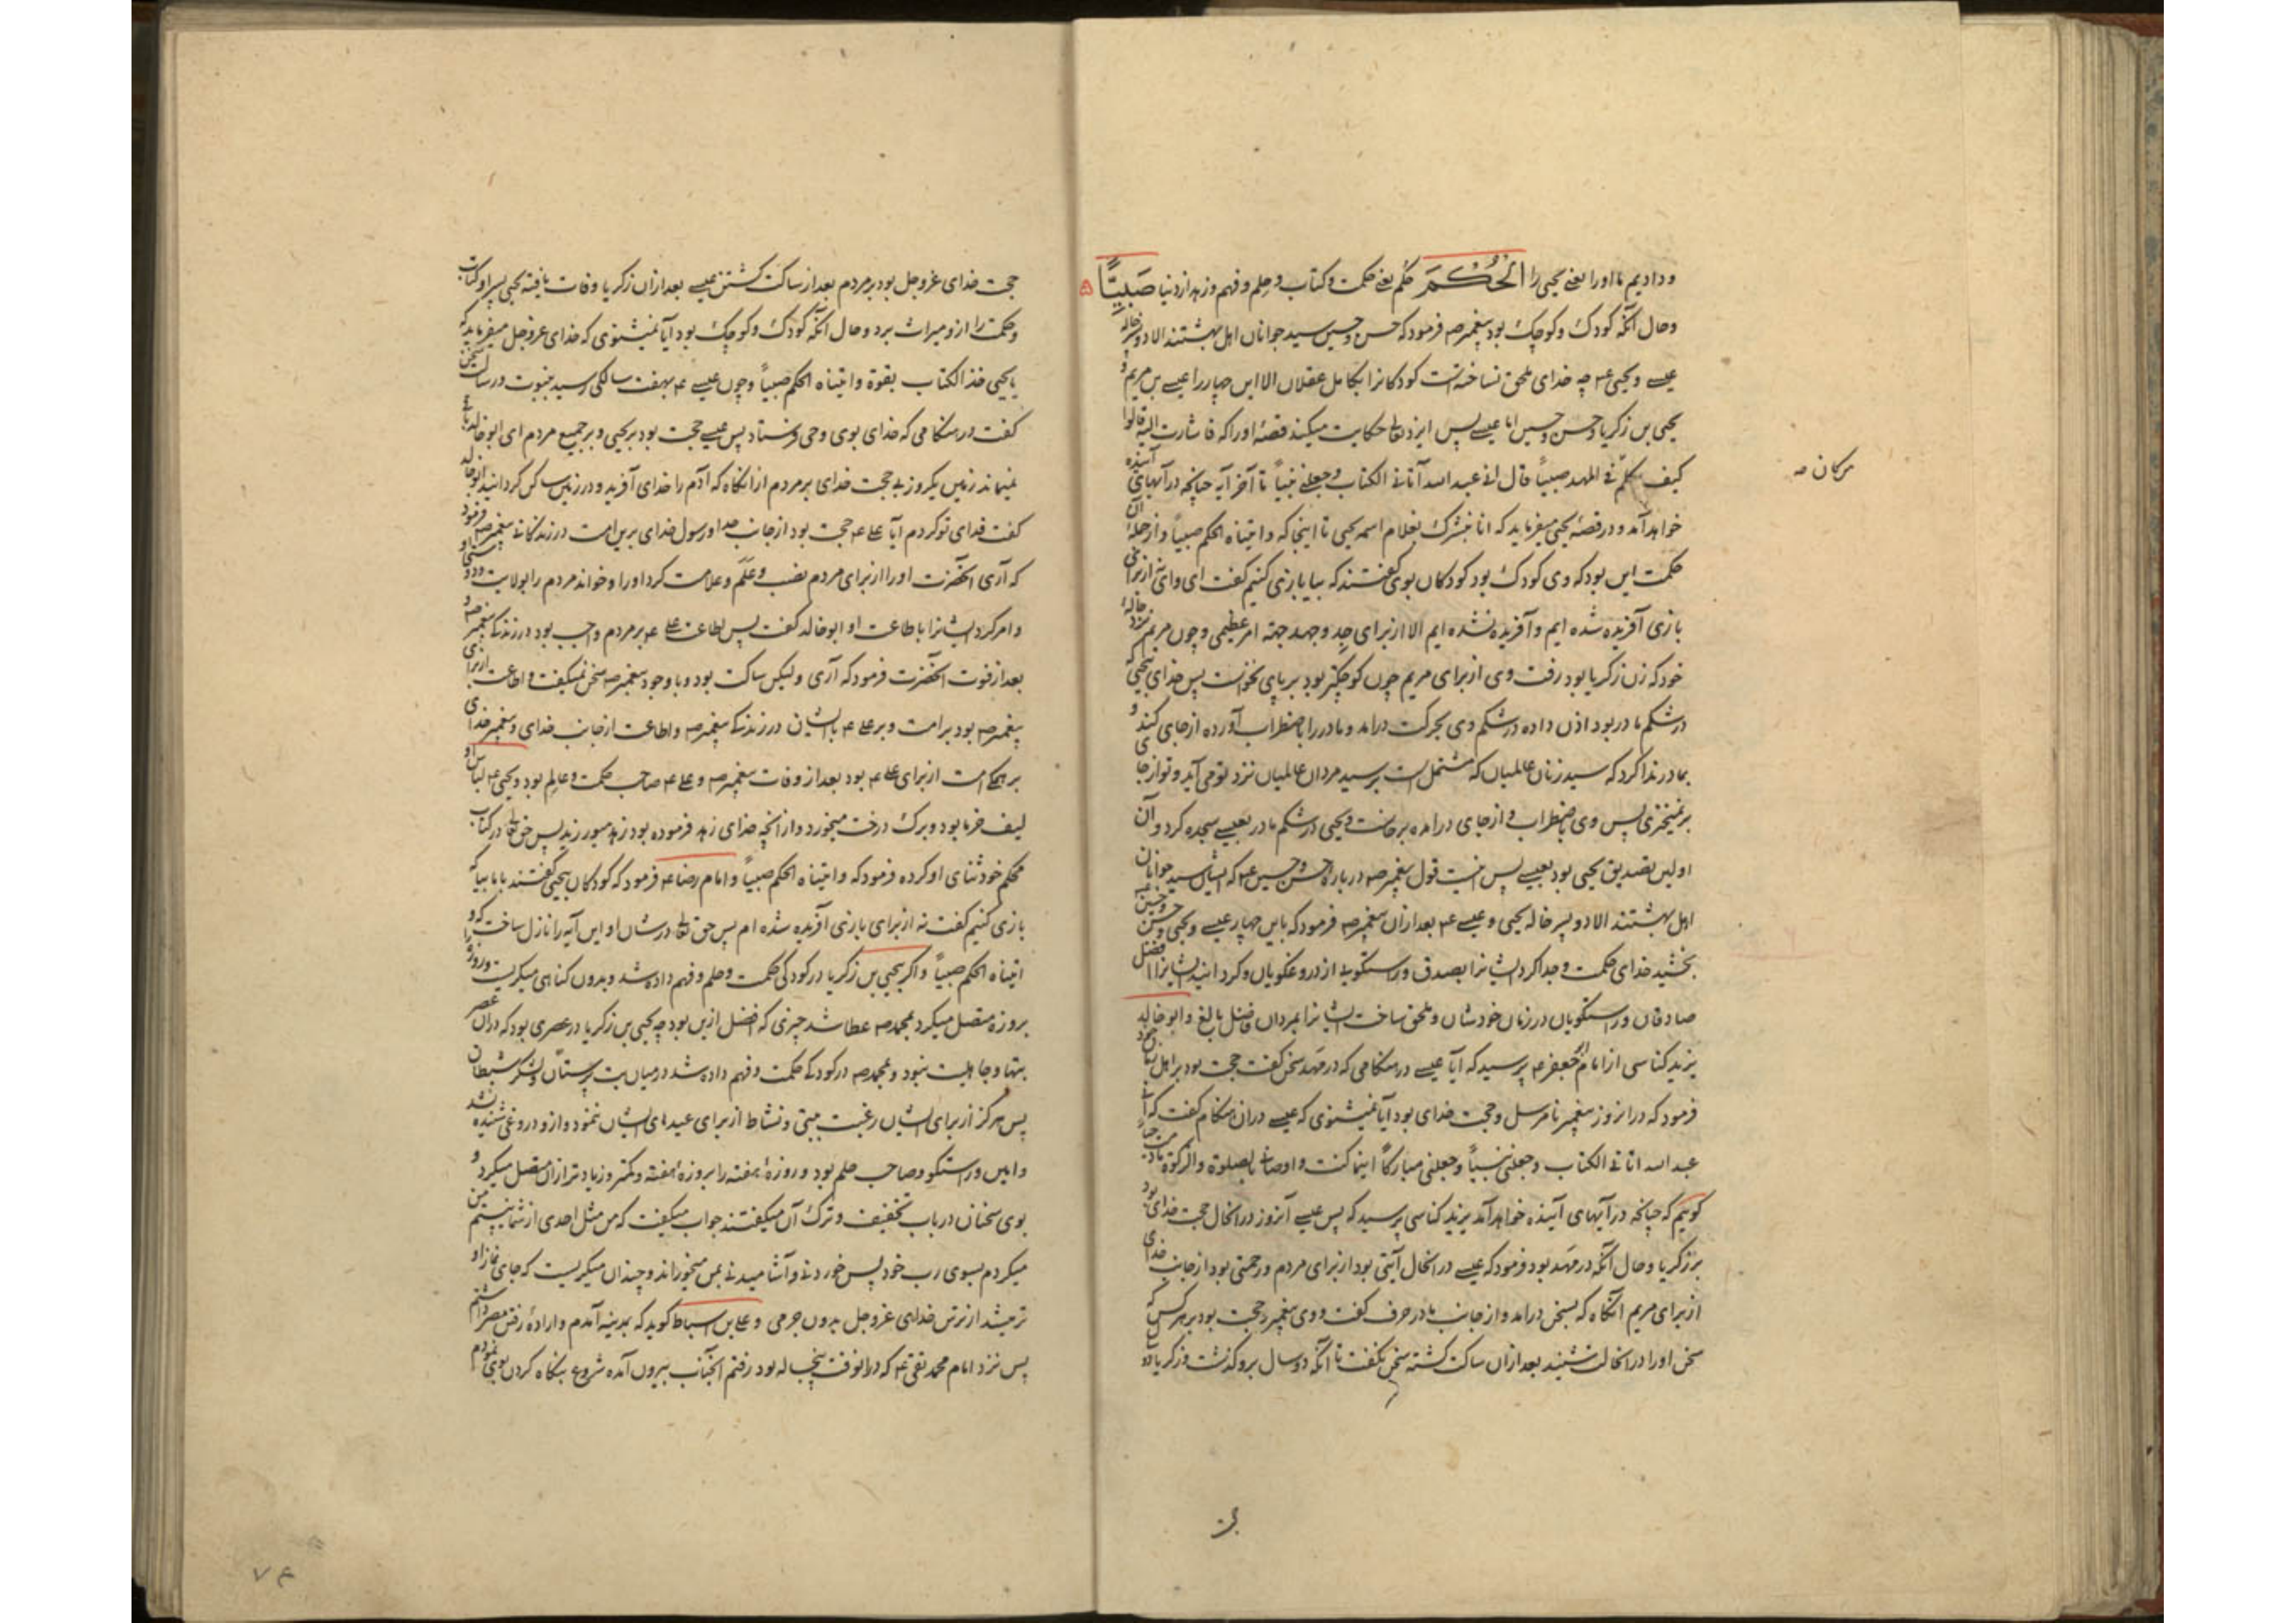 ودادیم ما اورا یعنی یحیی را الْحُكْمَ حکم یعنی حکمت و کتاب و حلم و فهم و زهد از دنیا صَبِيًّا
وحال آنکه کودک وکوچک بود پیغمبرص فرمود که حسن وحسین سید جوانان اهل بهشتند الا دو پسرخاله
عیسے ویحیی ع چه خدای ملحق نساخته است کودکانرا بکامل عقلان الا این چهار را عیسے بن مریم و
یحیی بن زکریا وحسن وحسین اما عیسے پس ایزد تعالی حکایت میکند قصهٔ اورا که فاشارت الیه قالوا
کیف نکلم فی المهد صبیاً قال انی عبد الله آتانی الکتاب وجعلنی نبیاً تا آخر آیه چنانچه در آیهای آینده
خواهد آمد و در قصهٔ یحیی میفرماید که انا نبشرک بغلام اسمه یحیی تا اینجا که واتیناه الحکم صبیاً واز جملهٔ آن
حکمت این بود که وی کودک بود کودکان بوی گفتند که بیا بازی کنیم گفت ای وای از برای
بازی آفریده شده ایم و آفریده نشده ایم الا از برای جد وجهد جهته امر عظیمی وچون مریم نزد خالهٔ
خود که زن زکریا بود رفت وی از برای مریم چون کوچکتر بود برپای نخواست پس خدای یحیی که
در شکم مادر بود اذن داده در شکم وی بحرکت درامد ومادر را باضطراب آورده از جای کند و
بمادر ندا کرد که سید زنان عالمیان که مشتمل است بر سید مردان عالمیان نزد تو می آید و تو از جای
برنمیخیزی پس وی باضطراب از جای درامده برخاست ویحیی در شکم مادر بعیسے سجده کرد و آن
اولین تصدیق یحیی بود بعیسے پس اینست قول پیغمبرص در بارهٔ حسن وحسین ع که ایشان سید جوانان
اهل بهشتند الا دو پسر خاله یحیی وعیسے ع بعد ازان پیغمبرص فرمود که باین چهار عیسے ویحیی وحسن وحسین
بخشید خدای حکمت وجدا کرد ایشانرا بصدق وراستگویی از دروغگویان وکردانید ایشانرا افضل
صادقان وراستگویان در زمان خودشان وملحق ساخت ایشانرا بمردان فاضل بالغ وابو خالد
یزید کناسی از امام جعفر ع پرسید که آیا عیسے در هنگامی که در مهد سخن گفت حجت بود بر اهل زمان خود
فرمود که در انروز پیغمبر نامرسل وحجت خدای بود آیا نمیشنوی که عیسے دران هنگام گفت که انی
عبد الله اتانی الکتاب وجعلنی نبیاً وجعلنی مبارکاً اینما کنت واوصانی بالصلوة والزکوة مادمت حیاً
گوییم که چنانچه در آیهای آینده خواهد آمد یزید کناسی پرسید که پس عیسے آنروز در انحال حجت خدای بود
بر زکریا وحال آنکه در مهد بود فرمود که عیسے در انحال آیتی بود از برای مردم ورحمتی بود از جانب خدای
از برای مریم آنگاه که بسخن درامد واز جانب مادر حرف گفت ووی پیغمبر وحجت بود بر هر کس که
سخن اورا در انحالت شنید بعد ازان ساکت گشته سخن نگفت تا آنکه دو سال برو گذشت وزکریا
حجت خدای عزوجل بود بر مردم بعد از ساکت گشتن عیسے بعد ازان زکریا وفات یافته یحیی پسر او کتاب
وحکمت را ازو میراث برد وحال آنکه کودک وکوچک بود آیا نمیشنوی که خدای عزوجل میفرماید که
یا یحیی خذ الکتاب بقوة واتیناه الحکم صبیاً وچون عیسے ع بهفت سالگی رسید بنبوت ورسالت سخن
گفت در هنگامی که خدای بوی وحی فرستاد پس عیسے حجت بود بر یحیی وبر جمیع مردم ای ابو خالد باقی
نمیماند زمین یکروز بی حجت خدای بر مردم از انگاه که آدم را خدای آفرید و در زمین ساکن گردانید ابو خالد
گفت فدای تو گردم آیا علی ع حجت بود از جانب خدا ورسول خدای برین امت در زندگانی پیغمبرص فرمود
که آری انحضرت اورا از برای مردم نصب وعلم وعلامت کرد اورا وخواند مردم را بولایت ودوستی او
وامر کرد ایشانرا باطاعت او ابو خالد گفت پس اطاعت علی ع بر مردم واجب بود در زندگی پیغمبرص و
بعد از فوت انحضرت فرمود که آری ولیکن ساکت بود وبا وجود پیغمبرص سخن نمیگفت واطاعت از برای
پیغمبرص بود بر امت وبر علی ع با ایشان در زندگی پیغمبرص واطاعت از جانب خدای وپیغمبر خدای
بر همگی امت از برای علی ع بود بعد از وفات پیغمبرص وعلی ع صاحب حکمت وعالم بود ویحیی ع لباس او
لیف خرما بود وبرگ درخت میخورد واز انچه خدای زهد فرموده بود زهد میورزید پس حق تعالی در کتاب
محکم خود ثنای او کرده فرمود که واتیناه الحکم صبیاً وامام رضا ع فرمود که کودکان بیحیی گفتند با ما بیا که
بازی کنیم گفت نه از برای بازی آفریده شده ام پس حق تعالی در شان او این آیه را نازل ساخت که و
اتیناه الحکم صبیاً واگر یحیی بن زکریا در کودکی حکمت وحلم وفهم داده شد وبدون گناهی میگریست وروزه را
بروزه متصل میکرد بمحمدص عطا شد چیزی که افضل ازین بود چه یحیی بن زکریا در عصری بود که دران عصر
بتها وجاهلیت نبود وبمحمدص در کودکی حکمت وفهم داده شد در میان بت پرستان ولشکر شیطان
پس هرگز از برای ایشان رغبت ببتی ونشاط از برای عیدهای ایشان ننمود وازو دروغی شنیده نشد
وامین وراستگو وصاحب حلم بود وروزهٔ هفته را بروزهٔ هفته وکمتر وزیادتر ازان متصل میکرد و
بوی سخنان در باب تخفیف وترک آن میگفتند جواب میگفت که من مثل احدی از شما نیستم من
میگردم بسوی رب خود پس خوردنی وآشامیدنی بمن میخوراند وچندان میگریست که جای نماز او
تر میشد از ترس خدای عزوجل بدون جرمی وعلی بن اسباط گوید که بمدینه آمدم وارادهٔ رفتن مصر داشتم
پس نزد امام محمد تقی ع که در انوقت پنجساله بود رفتم انجناب بیرون آمده شروع بنگاه کردن بوی نمودم
۷۴